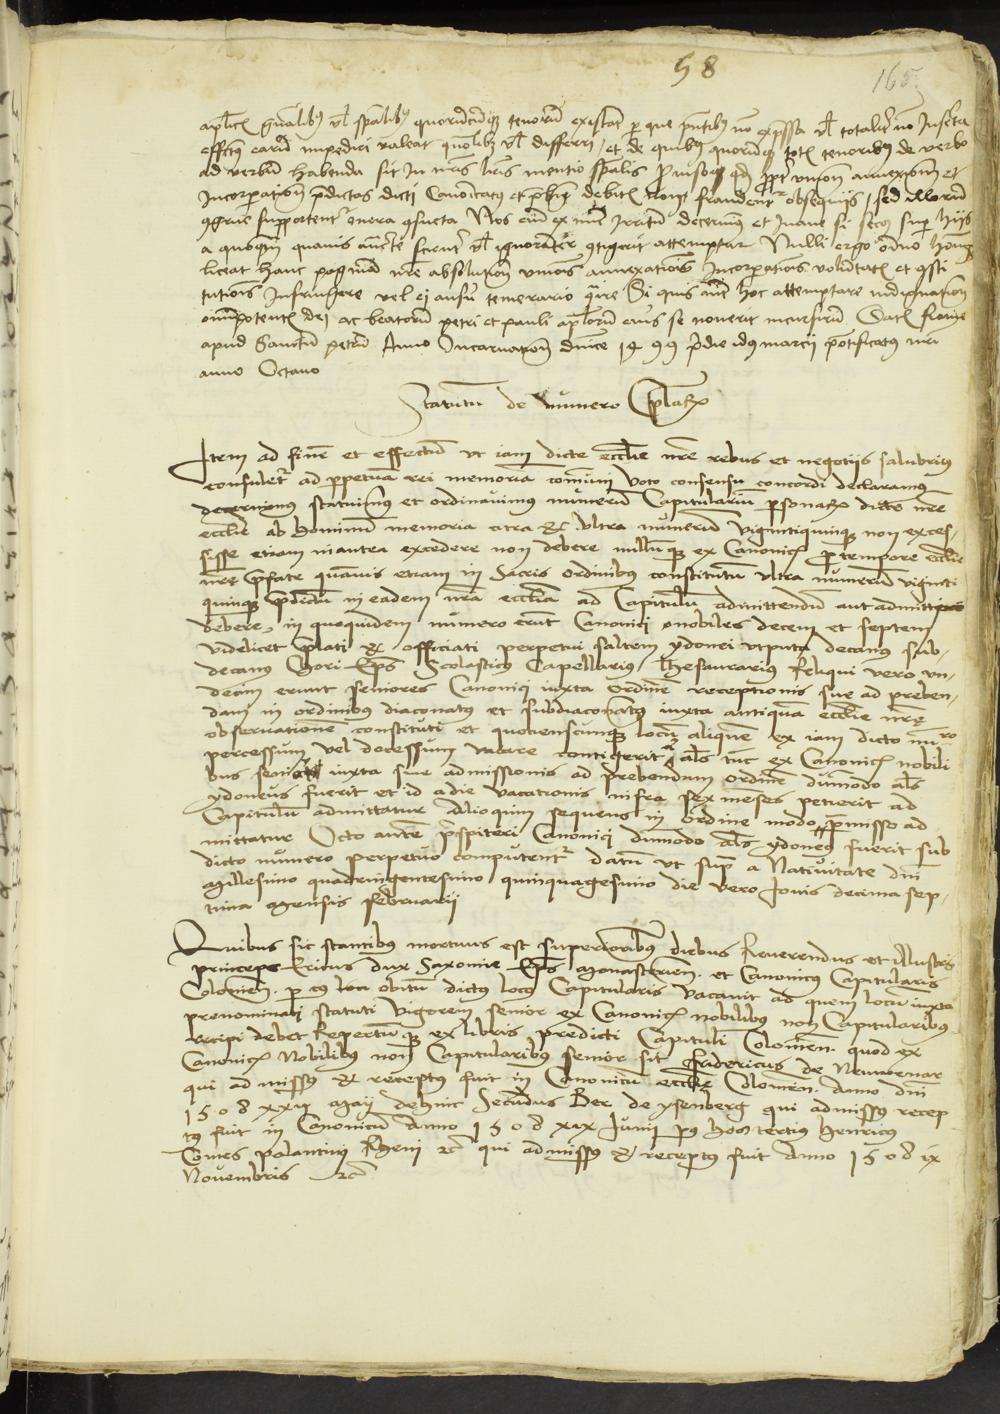 58
165
aplicis gnalibus vel spealibus quorumcumque tenorum existant per que pntibus non expressa vel totaliter non inserta
effectus earum impediri valeat quomolibet vel differri et de quibus quorumque totis tenoribus de verbo
ad verbum habenda sit in nris lris mentio spealis Proviso quod propter unionem annexionem et
Incorporationem predictas dicti Canonicatus et prebende debitis non fraudentur obsequiis sed illorum
congrue supportentur onera consueta Nos enim ex nunc irritum decernimus et inane si secus super hiis
a quoquam quavis aucte scienter vel ignoranter contigerit attemptari Nulli ergo omnino hominum
liceat hanc paginam nre absolutionis unionis annexationis Incorporationis voluntatis et consti
tutionis Infringere vel ei ausu temerario contraire Si quis autem hoc attemptare indignationem
omnipotentis dei ac beatorum petri et pauli aplorum eius se noverit incursurum Datum Rome
apud Sanctum petrum Anno Incarnationis dnice 1499 pridie idus marcii pontificatus nri
anno Octavo
Statutum de numero Caplarium
Item ad finem et effectum ut iam dicte ecclie nre rebus et negotiis salubrius
consuletur ad perpetuam rei memoriam comuni voto consensu concordi declaramus
decernimus statuimus et ordinavimus numerum Capitularium personarum dicte nre
ecclie ab hominum memoria citra et ultra numerum vigintiquinque non exces-
sisse etiam in antea excedere non debere nullumque ex Canonicis pro tempore ecclie
nre prefate quamvis etiam in sacris ordinibus constitutum ultra numerum viginti
quinque predictum in eadem nra ecclia ad Capitulum admittendum aut admitti
debere, in quoquidem numero erunt Canonici nobiles decem et septem
videlicet prelati et officiati perpetui saltem ydonei utputa decanus sub-
decanus Chori Eps Scolasticus Capellarius Thesaurarius Reliqui vero un-
decim erunt seniores Canonici iuxta ordinem receptionis sue ad preben-
dam in ordinibus diaconatus et subdiaconatus iuxta antiquam ecclie nre
observationem constituti et quotienscunque locum aliquem ex iam dicto numero
percessum vel decessum vacare contigerit als tunc ex Canonicis nobili
bus senior iuxta sue admissionis ad prebendam ordinem dummodo als
ydoneus fuerit et id a die vacationis infra sex menses petierit ad
Capitulum admittatur Alioquim sequens in ordine modo premisso ad
mittatur Octo autem prespiteri Canonici dummodo als ydoneus fuerit sub
dicto numero perpetuo computentur datum ut supra a Nativitate dni
Millesimo quadringentesimo quinquagesimo die vero Jovis decima sep-
tima mensis februarii
Quibus sic stantibus mortuus est superioribus diebus Reverendus et illustris
princeps Ericus dux Saxonie Eps Monasterien. et Canonicus Capitularis
Colonien. per cuius loci obitum dictus locus Capitularis vacavit ad quem locum iuxta
prenominati statuti vigorem senior ex Canonicis nobilibus non Capitularibus
recipi debet Repertumque ex libris predicti Capituli Colonien. quod ex
Canonicis Nobilibus non Capitularibus senior sit fridericus de Neuwenar
qui admissus et receptus fuit in Canonicum ecclie Colonien. Anno dni
1508 xxii Maij dehinc Secundus Ber de ysenberg qui admissus recep
tus fuit in Canonicum Anno 1508 xix Junij post hos tertius Henricus
Comes palantinus Rheni etc qui admissus et receptus fuit Anno 1508 ix
Novembris etc